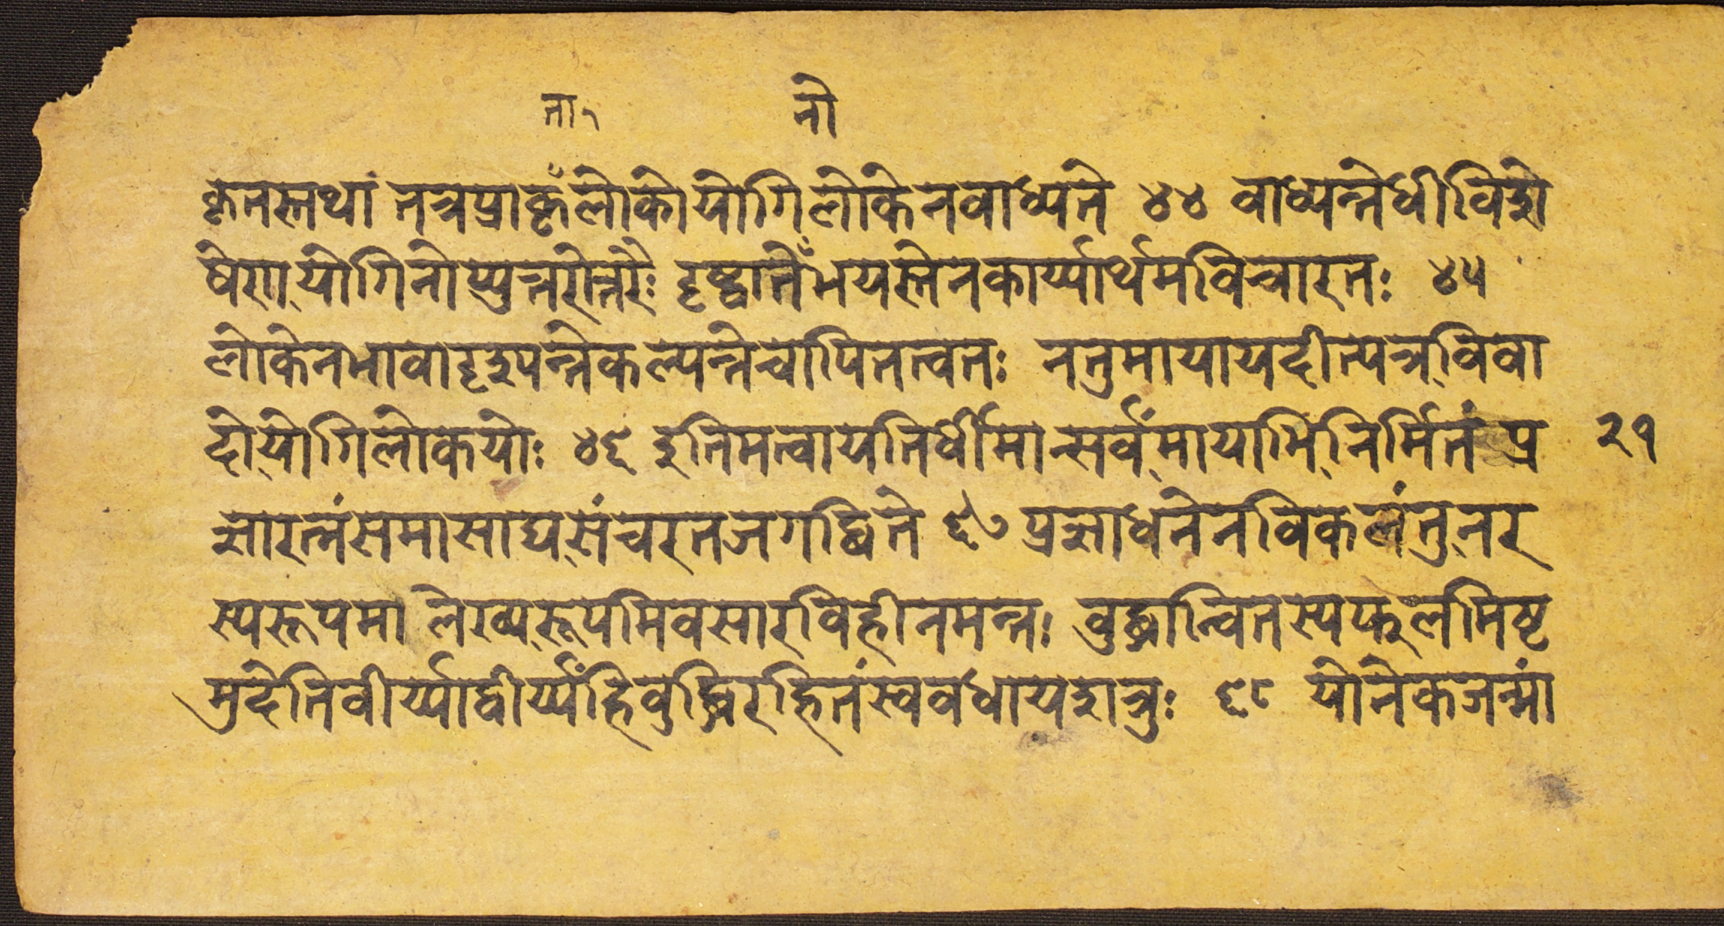 ता १ नो
कृतस्तथा तत्रप्राकृँलोकोयोगिलोकेनवाध्यते ४४ वाध्यन्तेधीविशे
षेणयोगिनोप्युत्तरोत्तरैः दृष्टान्तेँभयस्तेनकार्य्यार्थमविचारतः ४५
लोकेनभावादृश्यन्तेकल्प्यन्तेचापितत्वतः नतुमायायदीत्यत्रविवा
दोयोगिलोकयोः ४६ इतिमत्वायतिर्धीमान्सर्वंमायाभिनिर्मितं प्र २१
ज्ञारत्नंसमासाद्यसंचरतजगद्धिते ६७ प्रज्ञाधनेनविकलंतुनर
स्यरूपमा लेख्यरूपमिवसारविहीनमन्तः वुद्ध्यान्वितस्यफलमिष्ट
मुदेतिवीर्य्याद्वीर्य्यंहिवुद्धिरहितंस्ववधायशत्रुः ६८ योनेकजन्मां